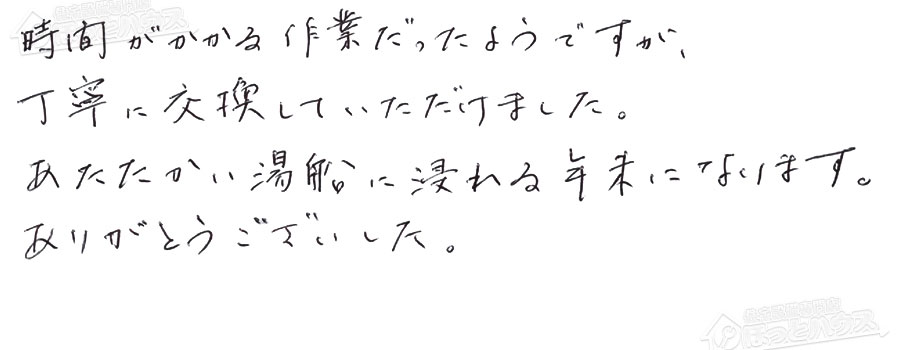 時間がかかる作業だったようですが、
丁寧に交換していただけました。
あたたかい湯船に浸れる年末になります。
ありがとうございした。
ほっとハウス